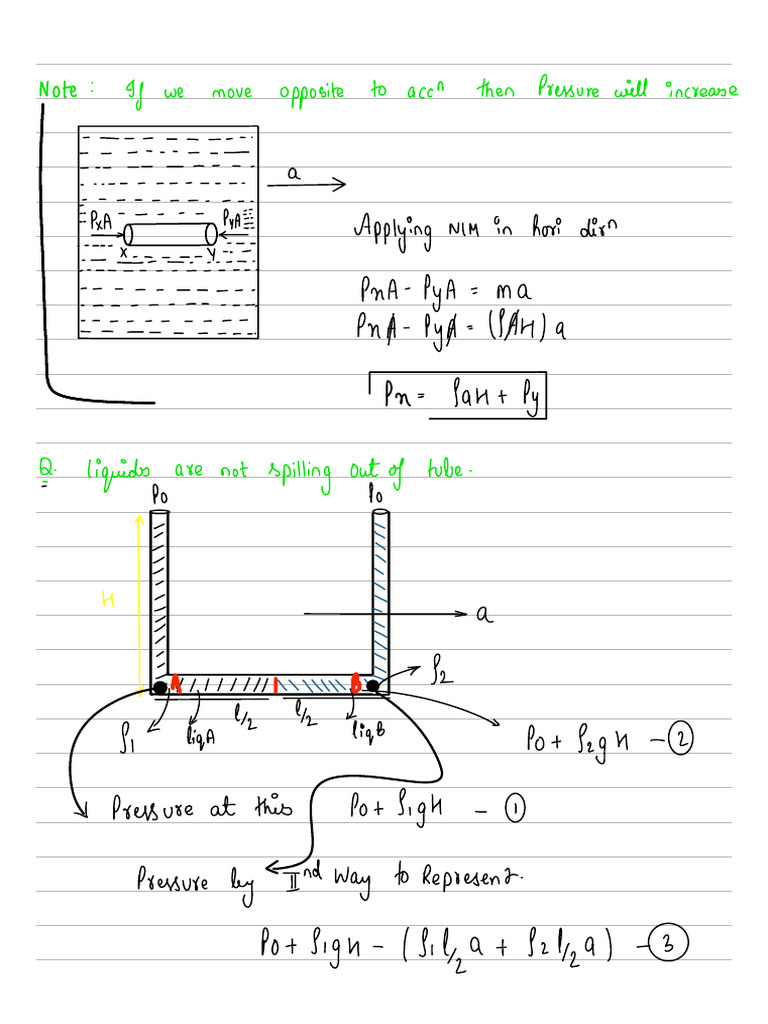 Note : If we move opposite to accⁿ then Pressure will increase
a
PxA PyA
x y
Applying NLM in hori dirⁿ
PxA - PyA = ma
PxA - PyA = (ρAH) a
Px = ρaH + Py
Q. liquids are not spilling out of tube.
Po Po
H
a
A B
ρ2
l/2 l/2
ρ1 liqA liqB
Po + ρ2gH - ②
Pressure at this Po + ρ1gH - ①
Pressure by IInd Way to Represent.
Po + ρ1gH - (ρ1 l/2 a + ρ2 l/2 a) - ③